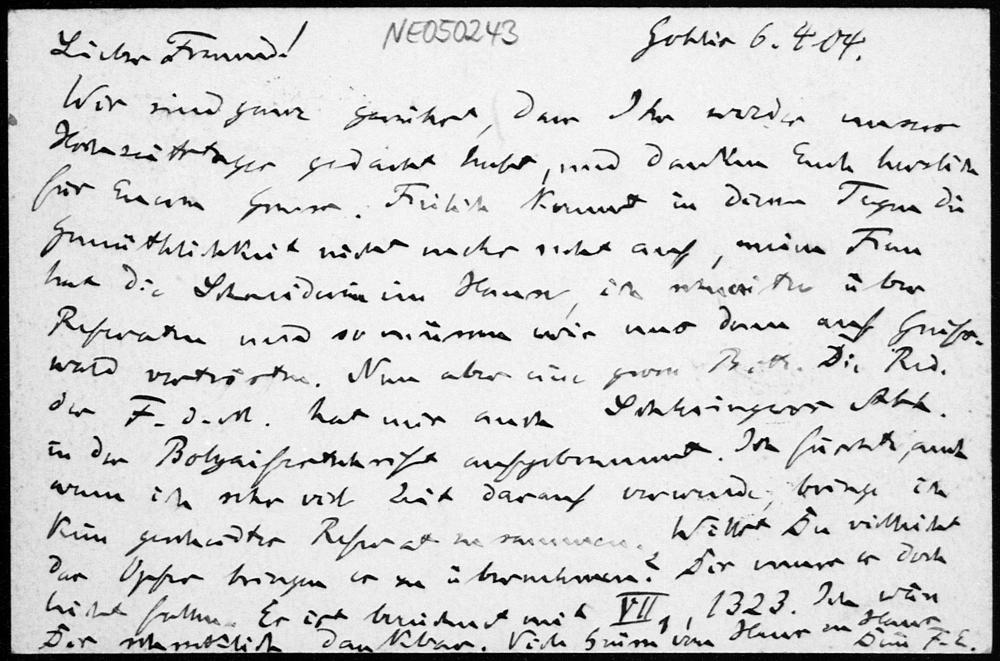 NE050243
Gohlis 6. 4. 04.
Lieber Freund!
Wir sind ganz gerührt, dass Ihr wieder unseres
Hochzeitstages gedacht habt, und danken Euch herzlich
für Euern Gruss. Freilich kommt in diesen Tagen die
Gemüthlichkeit nicht mehr recht auf, meine Frau
hat die Schneiderin im Hause, ich schreibe über
Referaten und so müssen wir uns dann auf Greifs-
wald vertrösten. Nun aber eine grosse Bitte. Die Red.
der F. d. M. hat mir auch Schlesingers Abh.
in der Bolyaifestschrift aufgebrummt. Ich fürchte, auch
wenn ich sehr viel Zeit darauf verwende, bringe ich
kein gescheidtes Referat zusammen. Willst Du vielleicht
das Opfer bringen es zu übernehmen? Dir muss es doch
leicht fallen. Es ist bezeichnet mit VII, 1323. Ich wäre
Dir schrecklich dankbar. Viele Grüsse von Haus zu Haus
Dein F. E.